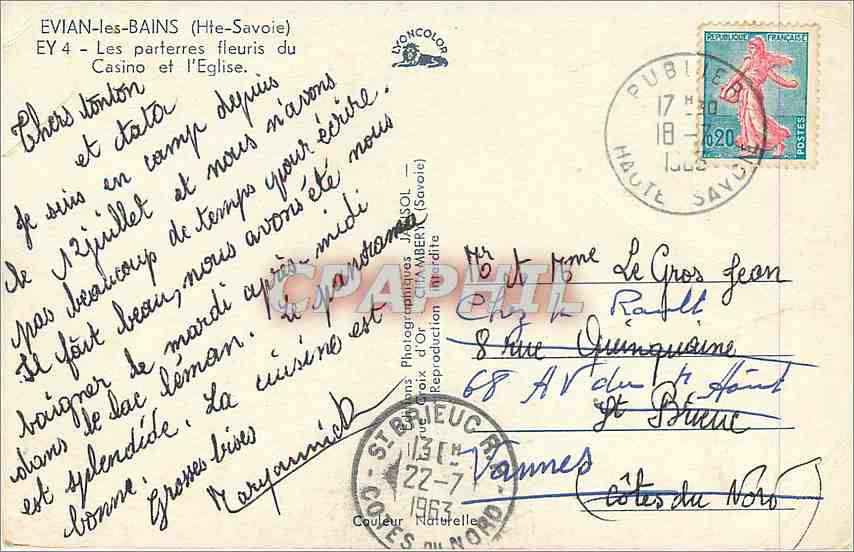 EVIAN-les-BAINS (Hte-Savoie)
EY 4 - Les parterres fleuris du
Casino et l'Eglise.
LYONCOLOR
REPUBLIQUE FRANÇAISE
0,20
POSTES
PUBLIER
17 H 30
18 -7
HAUTE SAVOIE
Chers tonton
et tata
Je suis en camp depuis
le 12 juillet et nous n'avons
pas beaucoup de temps pour écrire.
Il fait beau, nous avons été nous
baigner le mardi après-midi
dans le lac Léman. Le panorama
est splendide. La cuisine est
bonne.
Grosses bises
Maryannick
Editions Photographiques JANSOL -
Croix d'Or - CHAMBERY (Savoie)
Reproduction Interdite
CPAPHIL
Mr et Mme Le Gros Jean
Chez Mr Rault
8 rue Quinquaine
68 AV du 4 Août
St Brieuc
Vannes
(Côtes du Nord)
ST BRIEUC R.P.
13 H
22-7
1963
COTES DU NORD
Couleur Naturelle